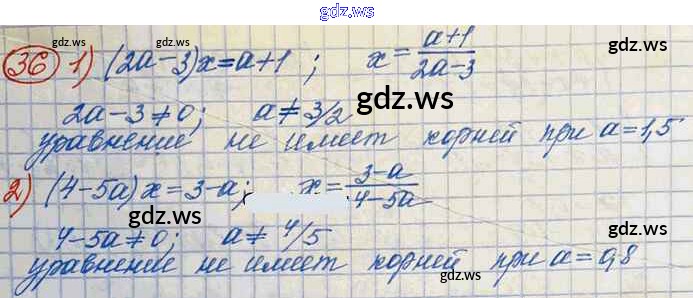 gdz.ws
36 1) (2a-3)x=a+1; x=\frac{a+1}{2a-3}
gdz.ws gdz.ws gdz.ws
2a-3≠0; a≠3/2
gdz.ws
уравнение не имеет корней при a=1,5
2) (4-5a)x=3-a; x=\frac{3-a}{4-5a}
gdz.ws
4-5a≠0; a≠4/5
gdz.ws
уравнение не имеет корней при a=0,8
gdz.ws gdz.ws gdz.ws